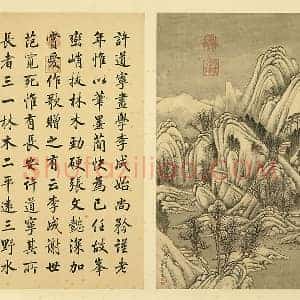 許道寧畫學李成始尚矜謹老
年惟以筆墨簡快為己任故峯
巒峭拔林木勁硬張文懿深加
賞愛作歌贈之有云李成謝世
范寬死惟有長安許道寧其所
長者三一林木二平遠三野水